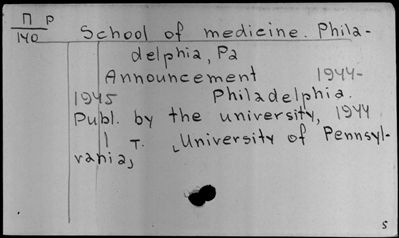 П р
140
School of medicine. Phila-
delphia, Pa
Announcement 1944-
1945 Philadelphia.
Publ. by the university, 1944
1 т. University of Pennsyl-
vania,
s